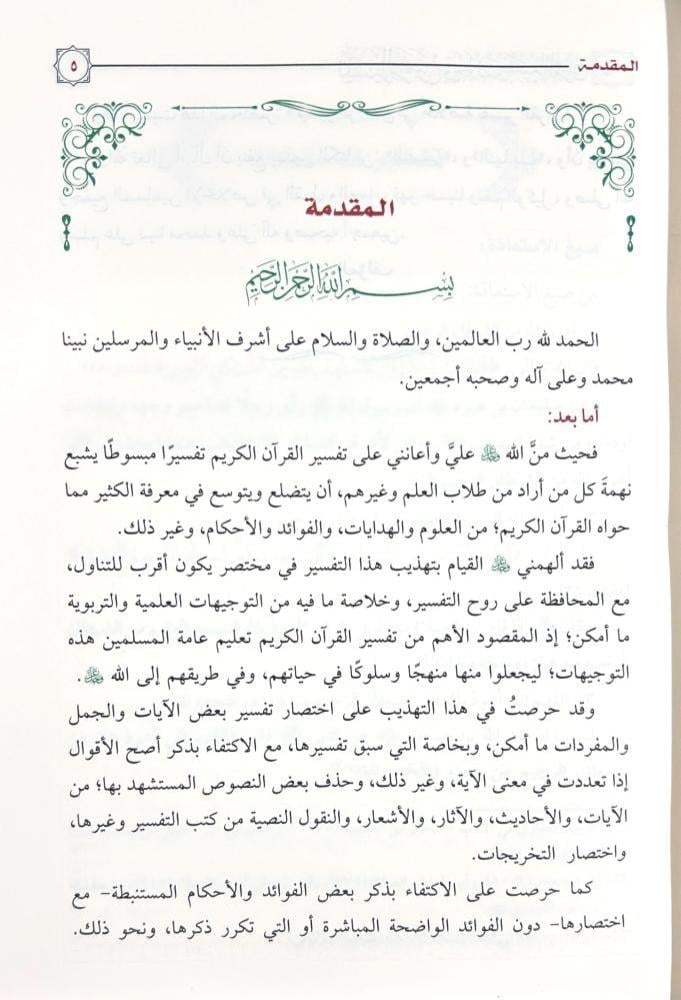 المقدمة
٥
المقدمة
بسم الله الرحمن الرحيم
الحمد لله رب العالمين، والصلاة والسلام على أشرف الأنبياء والمرسلين نبينا
محمد وعلى آله وصحبه أجمعين.
أما بعد:
فحيث منَّ الله ﷻ عليَّ وأعانني على تفسير القرآن الكريم تفسيرًا مبسوطًا يشبع
نهمةَ كل من أراد من طلاب العلم وغيرهم، أن يتضلع ويتوسع في معرفة الكثير مما
حواه القرآن الكريم؛ من العلوم والهدايات، والفوائد والأحكام، وغير ذلك.
فقد ألهمني ﷻ القيام بتهذيب هذا التفسير في مختصر يكون أقرب للتناول،
مع المحافظة على روح التفسير، وخلاصة ما فيه من التوجيهات العلمية والتربوية
ما أمكن؛ إذ المقصود الأهم من تفسير القرآن الكريم تعليم عامة المسلمين هذه
التوجيهات؛ ليجعلوا منها منهجًا وسلوكًا في حياتهم، وفي طريقهم إلى الله ﷻ.
وقد حرصتُ في هذا التهذيب على اختصار تفسير بعض الآيات والجمل
والمفردات ما أمكن، وبخاصة التي سبق تفسيرها، مع الاكتفاء بذكر أصح الأقوال
إذا تعددت في معنى الآية، وغير ذلك، وحذف بعض النصوص المستشهد بها؛ من
الآيات، والأحاديث، والآثار، والأشعار، والنقول النصية من كتب التفسير وغيرها،
واختصار التخريجات.
كما حرصت على الاكتفاء بذكر بعض الفوائد والأحكام المستنبطة- مع
اختصارها- دون الفوائد الواضحة المباشرة أو التي تكرر ذكرها، ونحو ذلك.